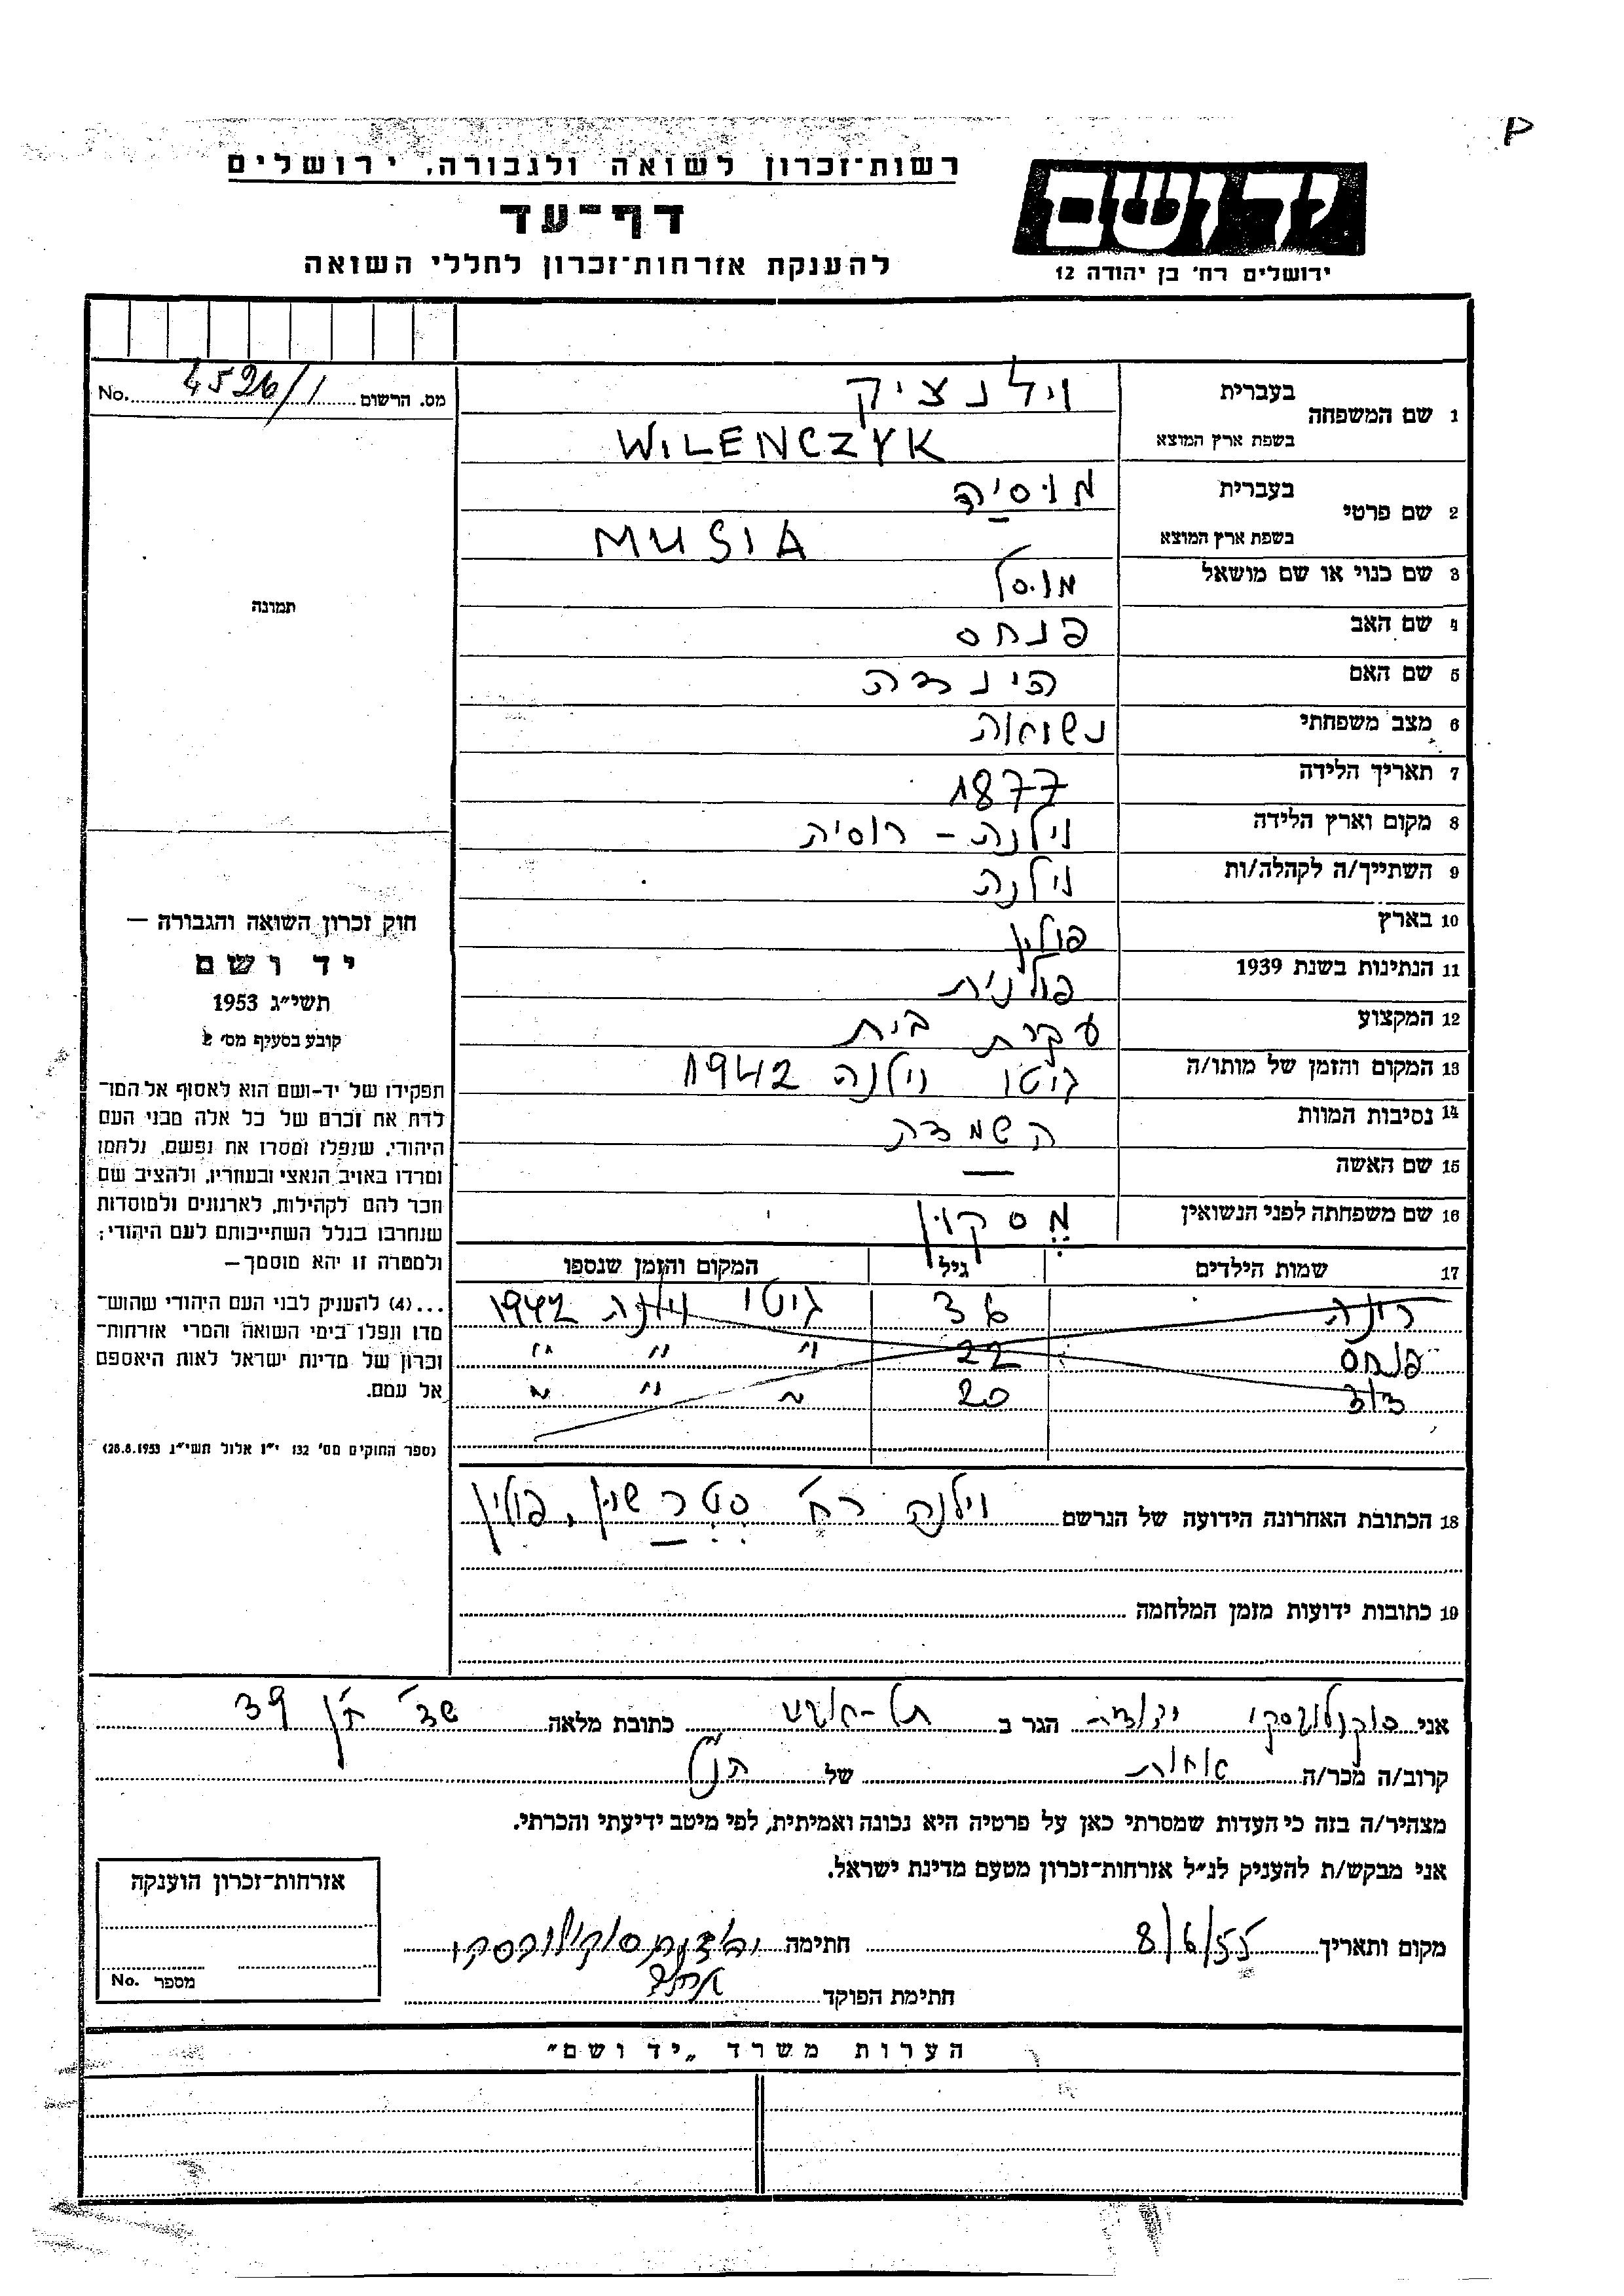 רשות־זכרון לשואה ולגבורה, ירושלים
יד ושם
דף־עד
להענקת אזרחות־זכרון לחללי השואה
ירושלים רח' בן יהודה 12
מס. הרשום 4526/1 No.
1 שם המשפחה בעברית וילנציק
בשפת ארץ המוצא WILENCZYK
2 שם פרטי בעברית מוסיה
בשפת ארץ המוצא MUSIA
3 שם כנוי או שם מושאל
4 שם האב פנחס
5 שם האם הינדה
6 מצב משפחתי נשואה
7 תאריך הלידה 1877
8 מקום וארץ הלידה וילנה - רוסיה
9 השתייך/ה לקהלה/ות וילנה
10 בארץ פולין
11 הנתינות בשנת 1939 פולנית
12 המקצוע עקרת בית
13 המקום והזמן של מותו/ה גיטו וילנה 1942
14 נסיבות המוות השמדה
15 שם האשה —
16 שם משפחתה לפני הנשואין
17 שמות הילדים גיל המקום והזמן שנספו
36 גיטו וילנה 1942
פנחס 22 " " "
דוד 20 " " "
18 הכתובת האחרונה הידועה של הנרשם וילנה רח' פולין
19 כתובות ידועות מזמן המלחמה
תמונה
חוק זכרון השואה והגבורה —
יד ושם
תשי"ג 1953
קובע בסעיף מס' 2
תפקידו של יד-ושם הוא לאסוף אל המו־
לדת את זכרם של כל אלה מבני העם
היהודי, שנפלו ומסרו את נפשם, נלחמו
ומרדו באויב הנאצי ובעוזריו, ולהציב שם
וזכר להם לקהילות, לארגונים ולמוסדות
שנחרבו בגלל השתייכותם לעם היהודי;
ולמטרה זו יהא מוסמך —
...(4) להעניק לבני העם היהודי שהוש־
מדו ונפלו בימי השואה והמרי אזרחות־
זכרון של מדינת ישראל לאות היאספם
אל עמם.
(ספר החוקים מס' 132 י"ז אלול תשי"ג 28.8.1953)
אני יהודית הגר ב תל-אביב כתובת מלאה שד' 39
קרוב/ה מכר/ה אחות של הנ"ל
מצהיר/ה בזה כי העדות שמסרתי כאן על פרטיה היא נכונה ואמיתית, לפי מיטב ידיעתי והכרתי.
אני מבקש/ת להעניק לנ"ל אזרחות־זכרון מטעם מדינת ישראל.
מקום ותאריך 8/6/55 חתימה
חתימת הפוקד
אזרחות־זכרון הוענקה
מספר No.
הערות משרד „יד ושם"